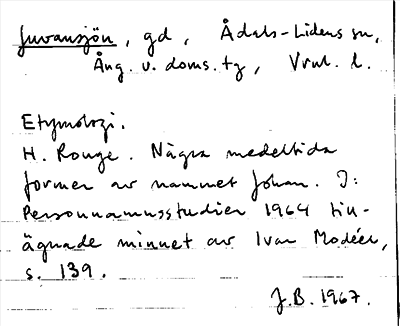 Juvansjön, gd, Ådals-Lidens sn,
Ång. v. doms. tg, Vrnl. l.
Etymologi.
H. Rouge. Några medeltida
former av namnet Johan. I:
Personnamnsstudier 1964 tin-
ägnade minnet av Ivar Modéer,
s. 139.
J.B. 1967.